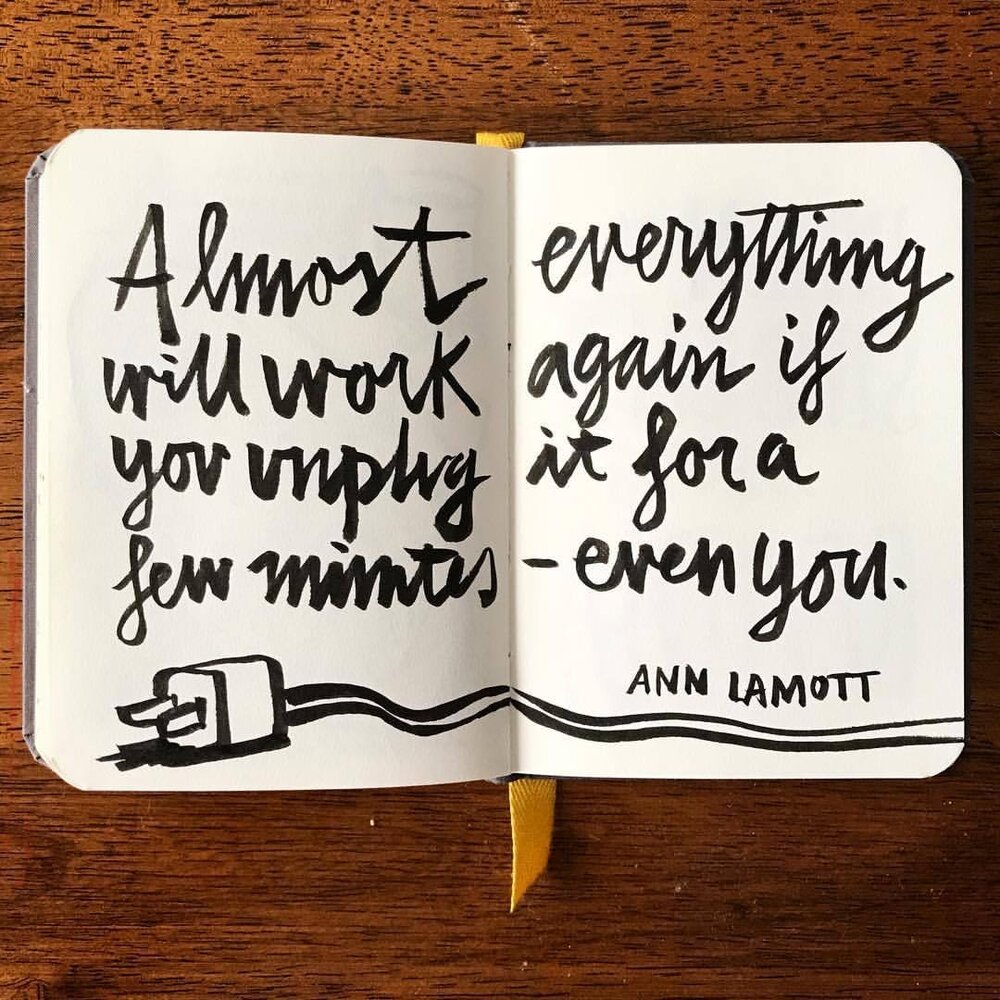 Almost everything
will work again if
you unplug it for a
few minutes - even you.
ANN LAMOTT